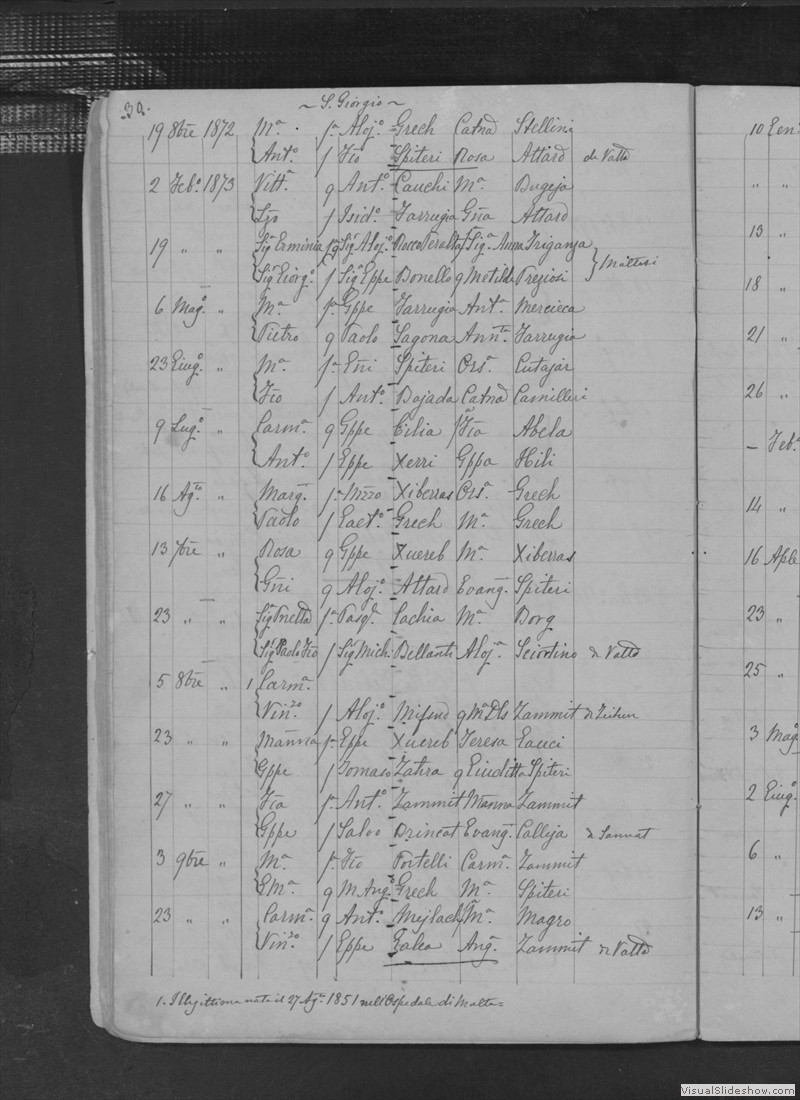 30.
~ S. Giorgio ~
19 8bre 1872 Mª. fª Alojº. Grech Catnª Stellini
Antº. f Fco Spiteri Rosa Attard di Vallª
2 Febº. 1873 Vittª. q Antº. Cauchi Mª. Bugeja
f Isidº. Farrugia Attard
19 " " Sigª Erminia Sigr Alojº. Sigª Anna Friganza
Sigr Giorgº. f Sigr Gppe Bonello q Matilde Preziosi } Maltesi
6 Magº. " Mª. fª Gppe Farrugia Antª. Mercieca
Pietro q Paolo Sagona Annª Farrugia
23 Giugº. " Mª. fª Gñi Spiteri Orsª. Cutajar
Fco f Antº. Bajada Catnª Camilleri
9 Lugº. " Carmª. q Gppe Cilia f Fca Abela
Antº. f Gppe Xerri Gppa Hili
16 Agº. " Margª. fª Xiberras Orsª. Grech
Paolo f Gaetº. Grech Mª. Grech
13 7bre " Rosa q Gppe Xuereb Mª. Xiberras
Gñi q Alojº. Attard Evangª. Spiteri
23 " " fª Pasqle. Cachia Mª. Borg
Sigr Paolo Fco f Sigr Mich. Bellanti Alojª. Sciortino di Vallª
5 8bre " 1 Carmª.
Vinzo. f Alojº. Mifsud q Mª Dls Zammit di Zeitun
23 " " Marina fª Gppe Xuereb Teresa Gauci
Gppe f Tomaso Zahra q Giuditta Spiteri
27 " " Fca fª Antº. Zammit Zammit
Gppe f Salvo Brincat Evangª. Calleja di Sannat
3 9bre " Mª. fª Fco Portelli Carmª. Zammit
q M. Angº. Grech Mª. Spiteri
23 " " Carmª. q Antº. Mejlach Mª. Magro
Vinzo. f Gppe Galea Angª. Zammit di Vallª
1. Illegittima nata il 27 Agº. 1851 nell'Ospedale di Malta =
10 Gen
" "
13 "
18 "
21 "
26 "
– Febº.
14 "
16 Aple
23 "
25 "
3 Magº.
2 Giugº.
6 "
13 "
VisualSlideshow.com